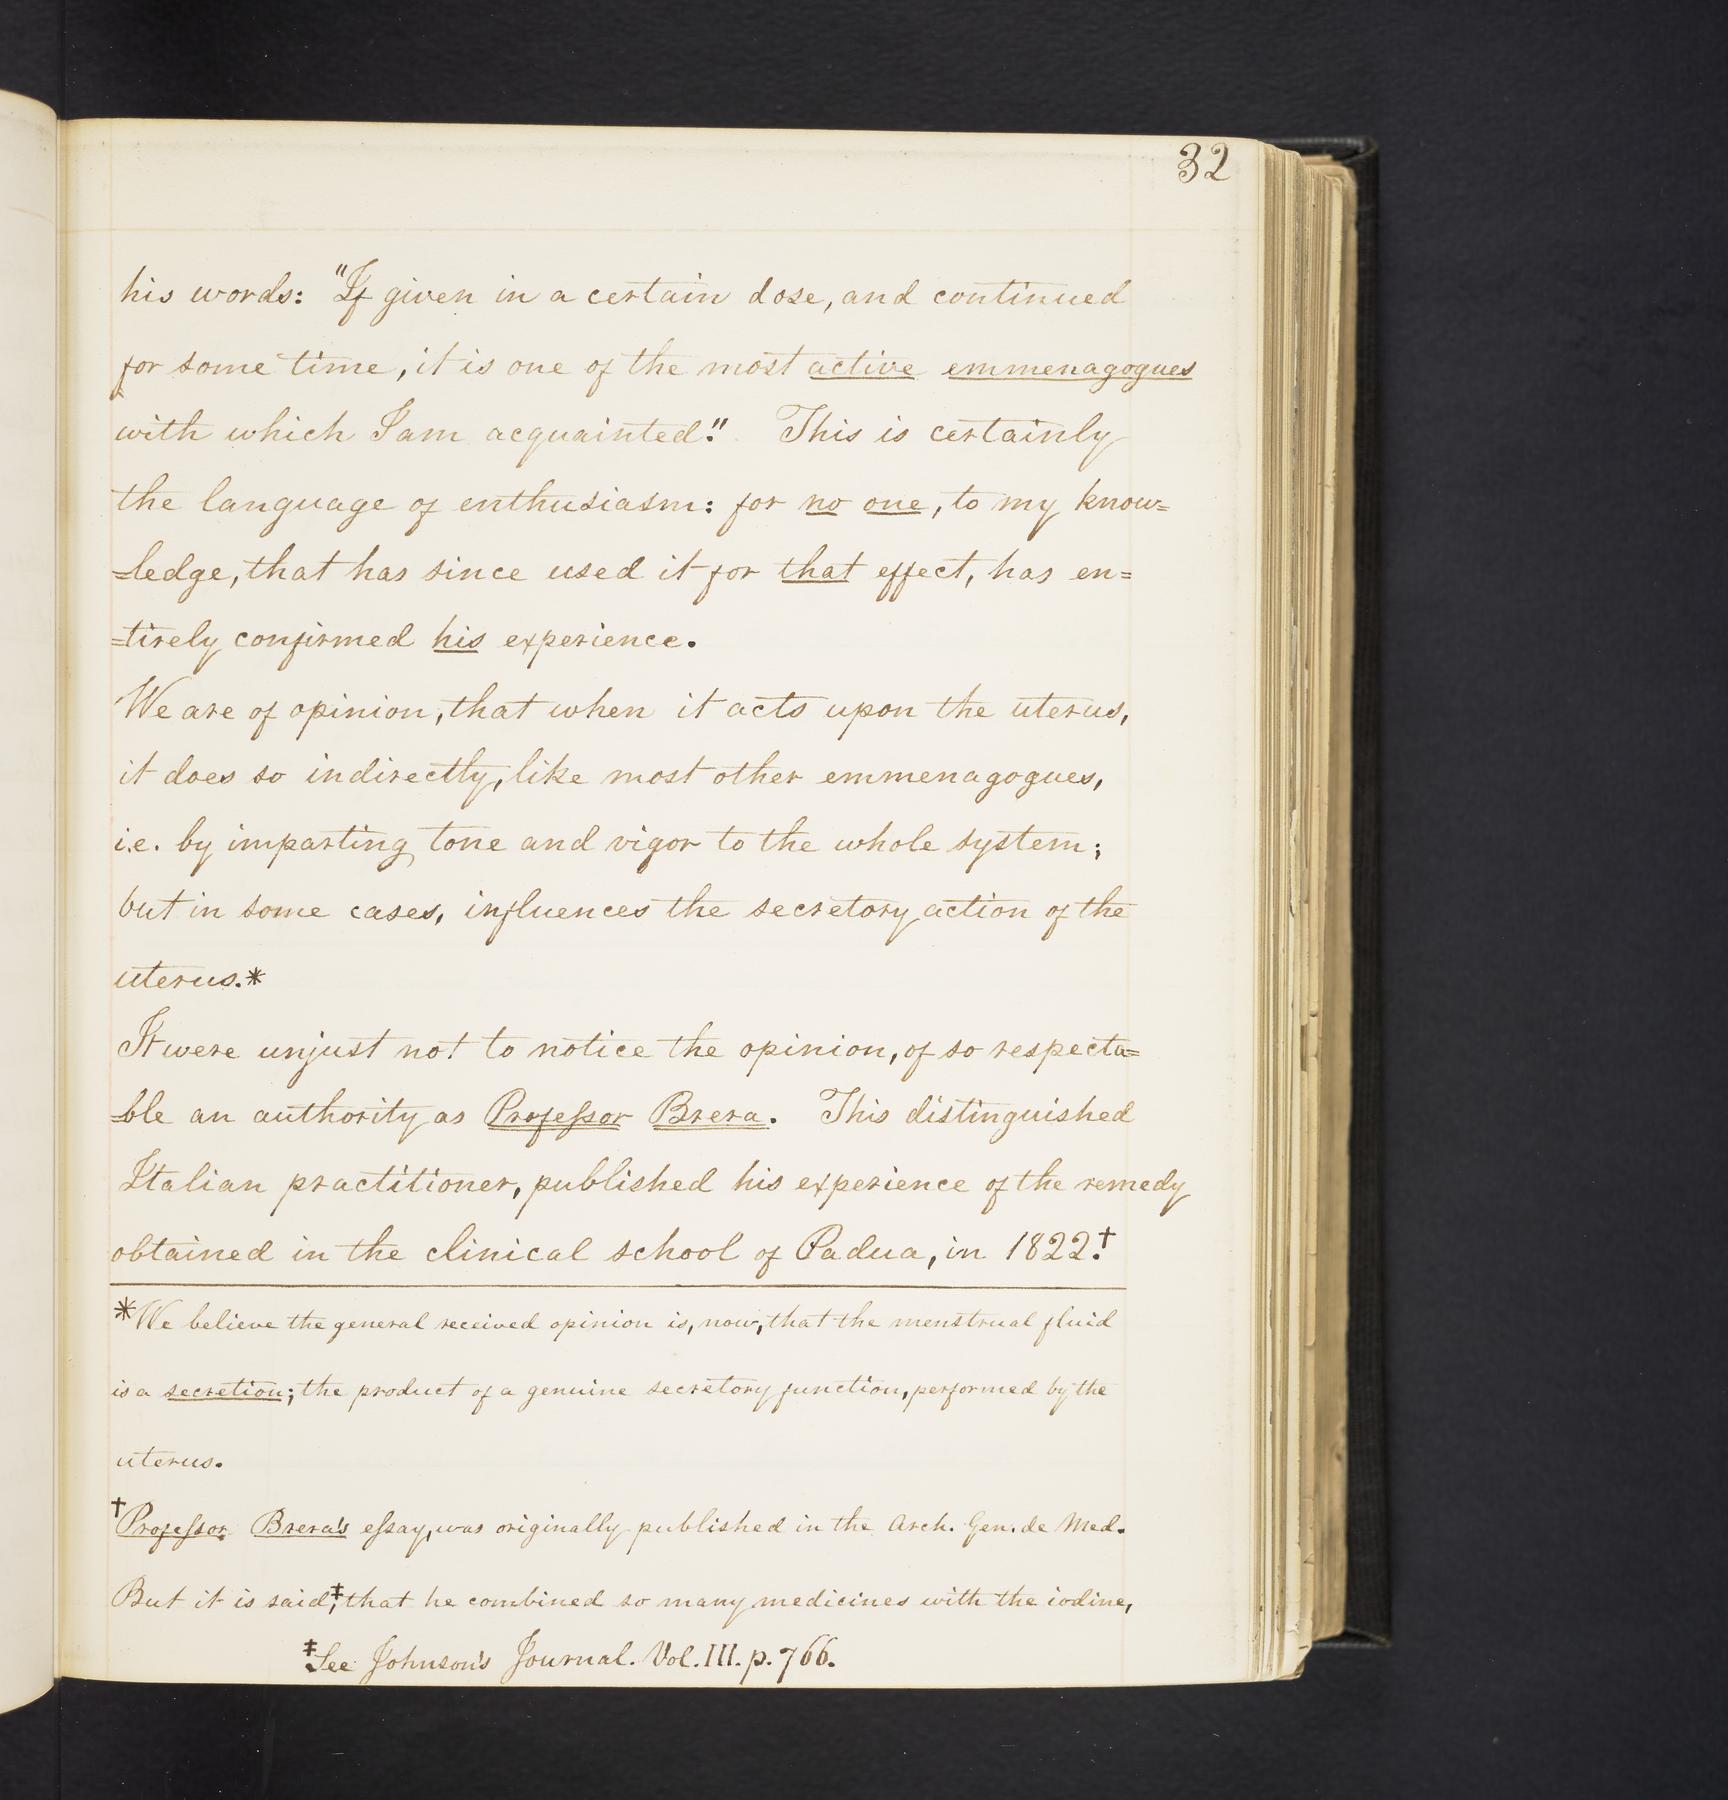 32
his words: "If given in a certain dose, and continued
for some time, it is one of the most active emmenagogues
with which I am acquainted." This is certainly
the language of enthusiasm: for no one, to my know=
=ledge, that has since used it for that effect, has en=
=tirely confirmed his experience.
We are of opinion, that when it acts upon the uterus,
it does so indirectly, like most other emmenagogues,
i.e. by imparting tone and vigor to the whole system;
but in some cases, influences the secretory action of the
uterus.*
It were unjust not to notice the opinion, of so respecta=
=ble an authority as Profeſsor Brera. This distinguished
Italian practitioner, published his experience of the remedy
obtained in the clinical school of Padua, in 1822.†
*We believe the general received opinion is, now, that the menstrual fluid
is a secretion; the product of a genuine secretory function, performed by the
uterus.
†Profeſsor Brera's eſsay, was originally published in the Arch. Gen. de Med.
But it is said,‡ that he combined so many medicines with the iodine,
‡See Johnson's Journal. Vol. III. p. 766.